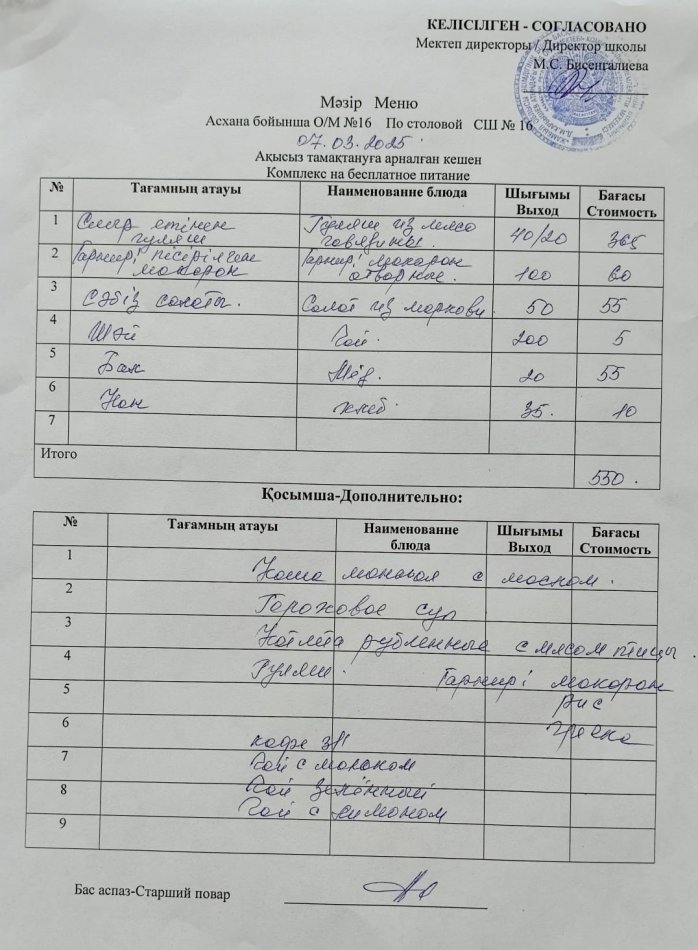 КЕЛІСІЛГЕН - СОГЛАСОВАНО
Мектеп директоры / Директор школы
М.С. Бисенгалиева
Мәзір Меню
Асхана бойынша О/М №16 По столовой СШ № 16
07.03.2025
Ақысыз тамақтануға арналған кешен
Комплекс на бесплатное питание
№ Тағамның атауы Наименованне блюда Шығымы Выход Бағасы Стоимость
1 Сиыр етінен гуляш Гуляш из мясо говядины. 40/20 365
2 Гарнир: пісірілген макарон Гарнир: макарон отварные. 100 60
3 Сәбіз салаты. Салат из моркови. 50 55
4 Шәй Чай. 200 5
5 Бал Мёд. 20 55
6 Нан хлеб. 35. 10
7
Итого 550.
Қосымша-Дополнительно:
№ Тағамның атауы Наименованне блюда Шығымы Выход Бағасы Стоимость
1 Каша манная с маслом.
2 Гороховое суп
3 Котлета рубленная с мясом птицы.
4 Гуляш. Гарнир: макарон
5 рис
6 гречка
кофе 3/1
7 Чай с молоком
8 Чай зелённый
Чай с лимоном
9
Бас аспаз-Старший повар